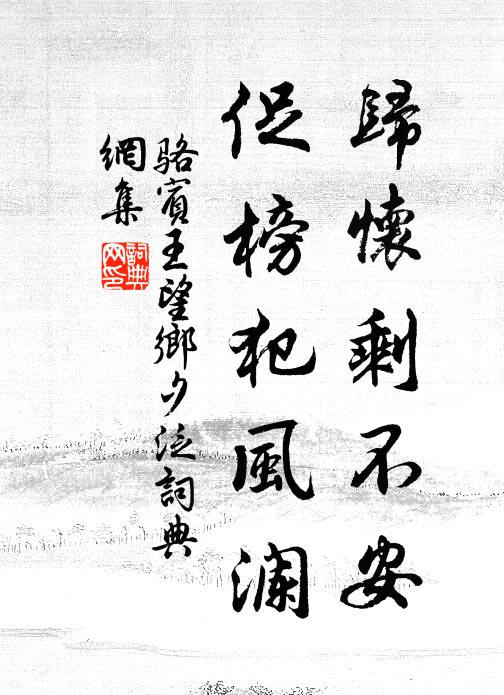 歸懷剩不安
促榜犯風瀾
駱賓王望鄉夕泛詞典
網集
詞典网印